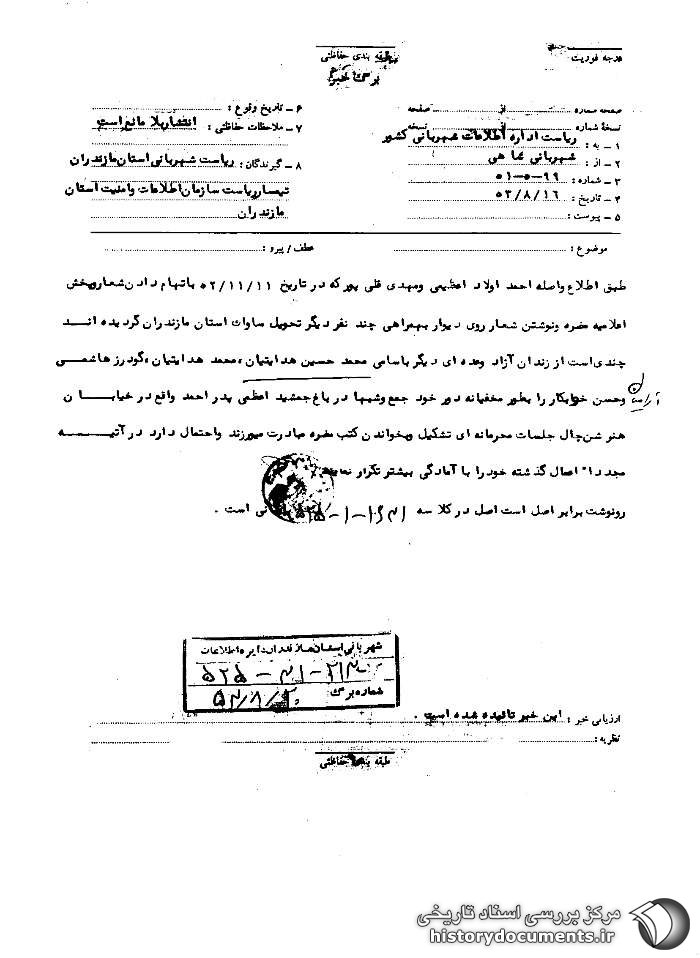 درجه فوریت
طبقه بندی حفاظتی
برگ خبر
صفحه شماره از صفحه
نسخهٔ شماره از نسخه
۱ ـ به : ریاست اداره اطلاعات شهربانی کشور
۲ ـ از : شهربانی شاهی
۳ ـ شماره : ۹۹-۵-۰۱
۴ ـ تاریخ : ۵۳/۸/۱۶
۵ ـ پیوست :
۶ ـ تاریخ وقوع :
۷ ـ ملاحظات حفاظتی : انتشار بلا مانع است
۸ ـ گیرندگان : ریاست شهربانی استان مازندران
تیمسار ریاست سازمان اطلاعات وامنیت استان
مازندران
موضوع : عطف / پیرو :
طبق اطلاع واصله احمد اولاد اعظیمی ومهدی قلی پور که در تاریخ ۵۲/۱۱/۱۱ باتهام دادن شعار وپخش
اعلامیه مضره ونوشتن شعار روی دیوار بهمراهی چند نفر دیگر تحویل ساواک استان مازندران گردیده انـد
چندی است از زندان آزاد وعده ای دیگر باسامی محمد حسین هدایتیان ، محمد هدایتیان ، گودرز هاشمی
وحسن خوابکار را بطور مخفیانه دور خود جمع وشبها در باغ جمشید اعظمی پدر احمد واقع در خیابـان
هنر شن چال جلسات محرمانه ای تشکیل وبخواندن کتب مضره مبادرت میورزند واحتمال دارد در آتیـه
مجددا" اعمال گذشته خود را با آمادگی بیشتر تکرار نمایند
رونوشت برابر اصل است اصل در کلاسه است .
شهربانی استان مازندران دایره اطلاعات
۵۲۵ - ۳۱ - ۲۱۳
شماره برگ
۵۳/۸/۲۰
ارزیابی خبر : این خبر تائید شده است .
نظریه :
طبقه بندی حفاظتی
مرکز بررسی اسناد تاریخی
historydocuments.ir